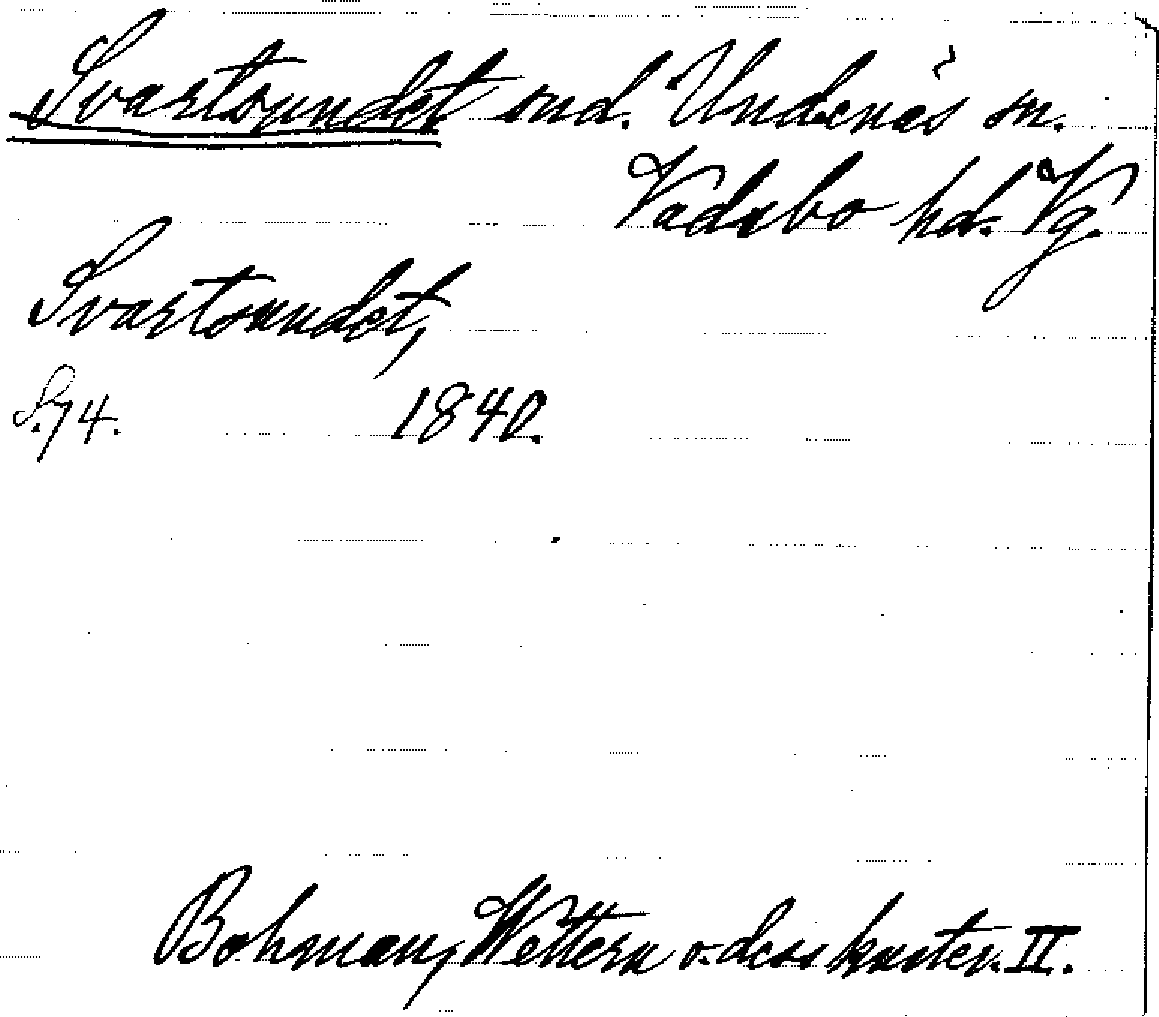 Svartsundet snd. Undenäs sn.
Vadsbo hd. Vg.
Svartsundet,
S. 74. 1840.
Bohman, Wettern o. dess kuster. II.